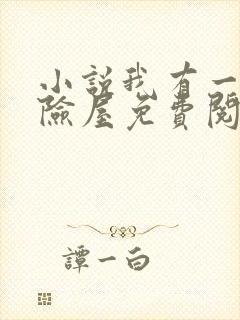 小說我有一
險屋免費閱
譚一白